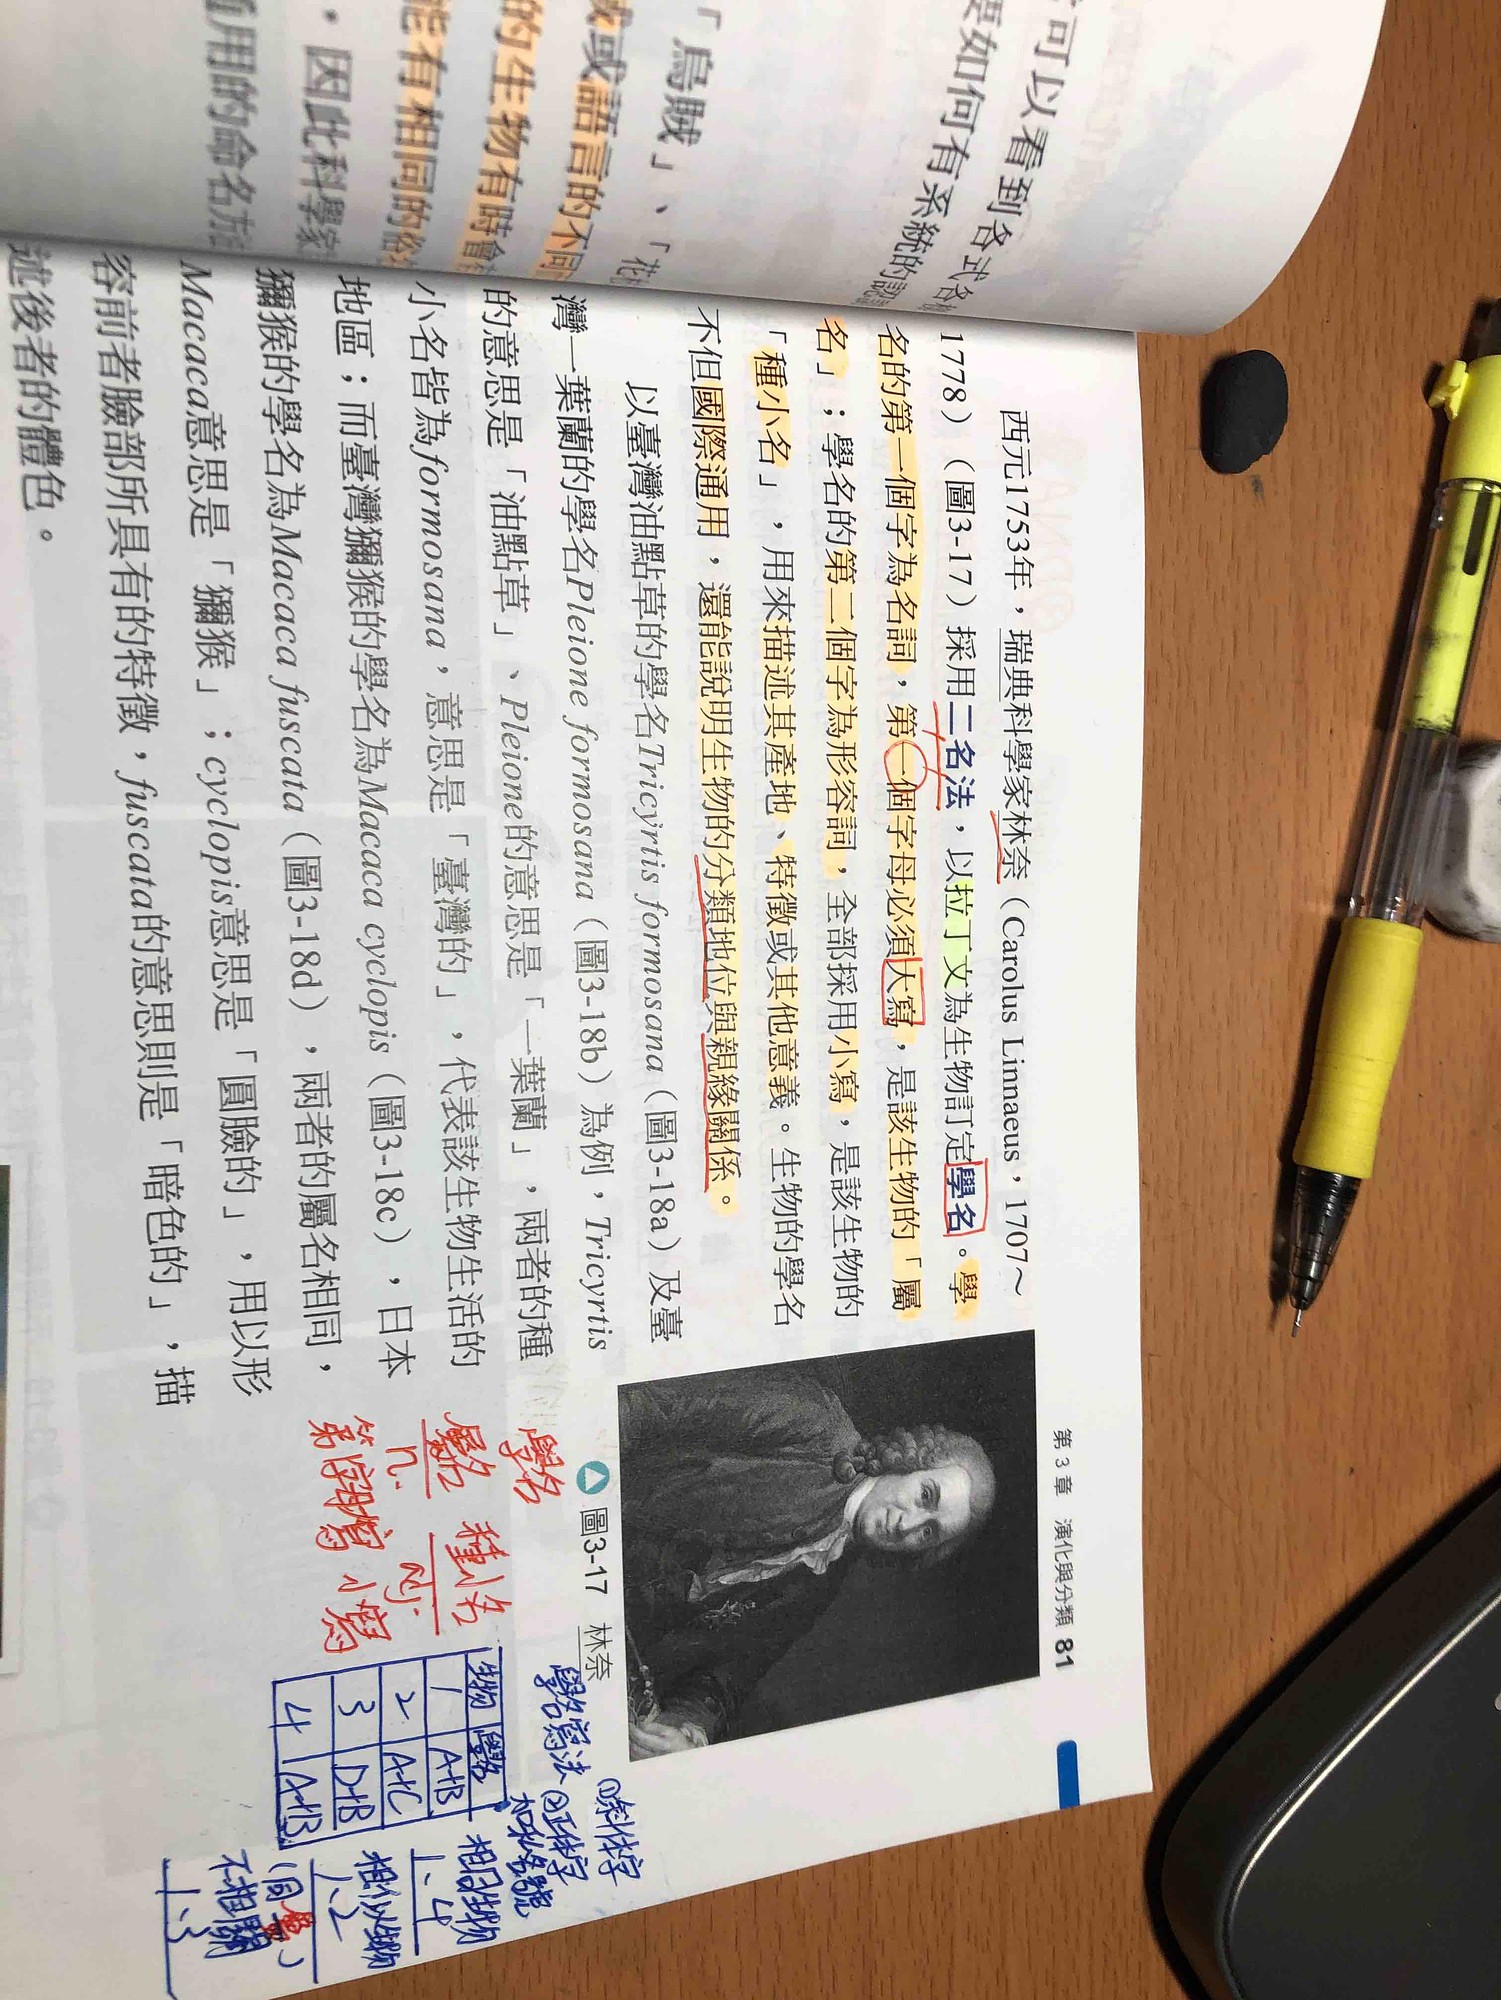 可以看到各式各
要如何有系統的認
「烏賊」、「花
或語言的不同
的生物有時會
能有相同的俗
,因此科學家
用的命名方
第3章 演化與分類 81
西元1753年,瑞典科學家林奈(Carolus Linnaeus,1707~
1778)(圖3-17)採用二名法,以拉丁文為生物訂定學名。學
名的第一個字為名詞,第一個字母必須大寫,是該生物的「屬
名」;學名的第二個字為形容詞,全部採用小寫,是該生物的
「種小名」,用來描述其產地、特徵或其他意義。生物的學名
不但國際通用,還能說明生物的分類地位與親緣關係。
以臺灣油點草的學名Tricyrtis formosana(圖3-18a)及臺
灣一葉蘭的學名Pleione formosana(圖3-18b)為例,Tricyrtis
的意思是「油點草」、Pleione的意思是「一葉蘭」,兩者的種
小名皆為formosana,意思是「臺灣的」,代表該生物生活的
地區;而臺灣獼猴的學名為Macaca cyclopis(圖3-18c),日本
獼猴的學名為Macaca fuscata(圖3-18d),兩者的屬名相同,
Macaca意思是「獼猴」;cyclopis意思是「圓臉的」,用以形
容前者臉部所具有的特徵,fuscata的意思則是「暗色的」,描
述後者的體色。
圖3-17 林奈
學名
屬名 種小名
n. adj.
第一字母大寫 小寫
學名寫法
①斜体字
②正体字
加私名號
生物 學名
1 A+B
2 A+C
3 D+B
4 A+B
相同生物
1、4
相似生物
1、2
(同屬)
不相關
1、3